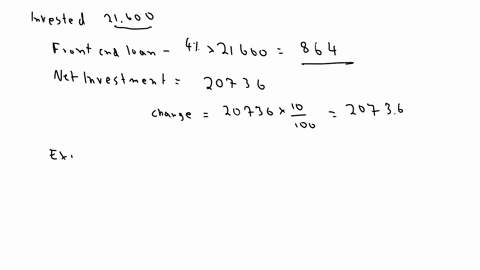 Invested 21.600
Front end loan - 4% × 21600 = 864
Net Investment = 20736
change = 20736 × 10/100 = 2073.6
Ex.